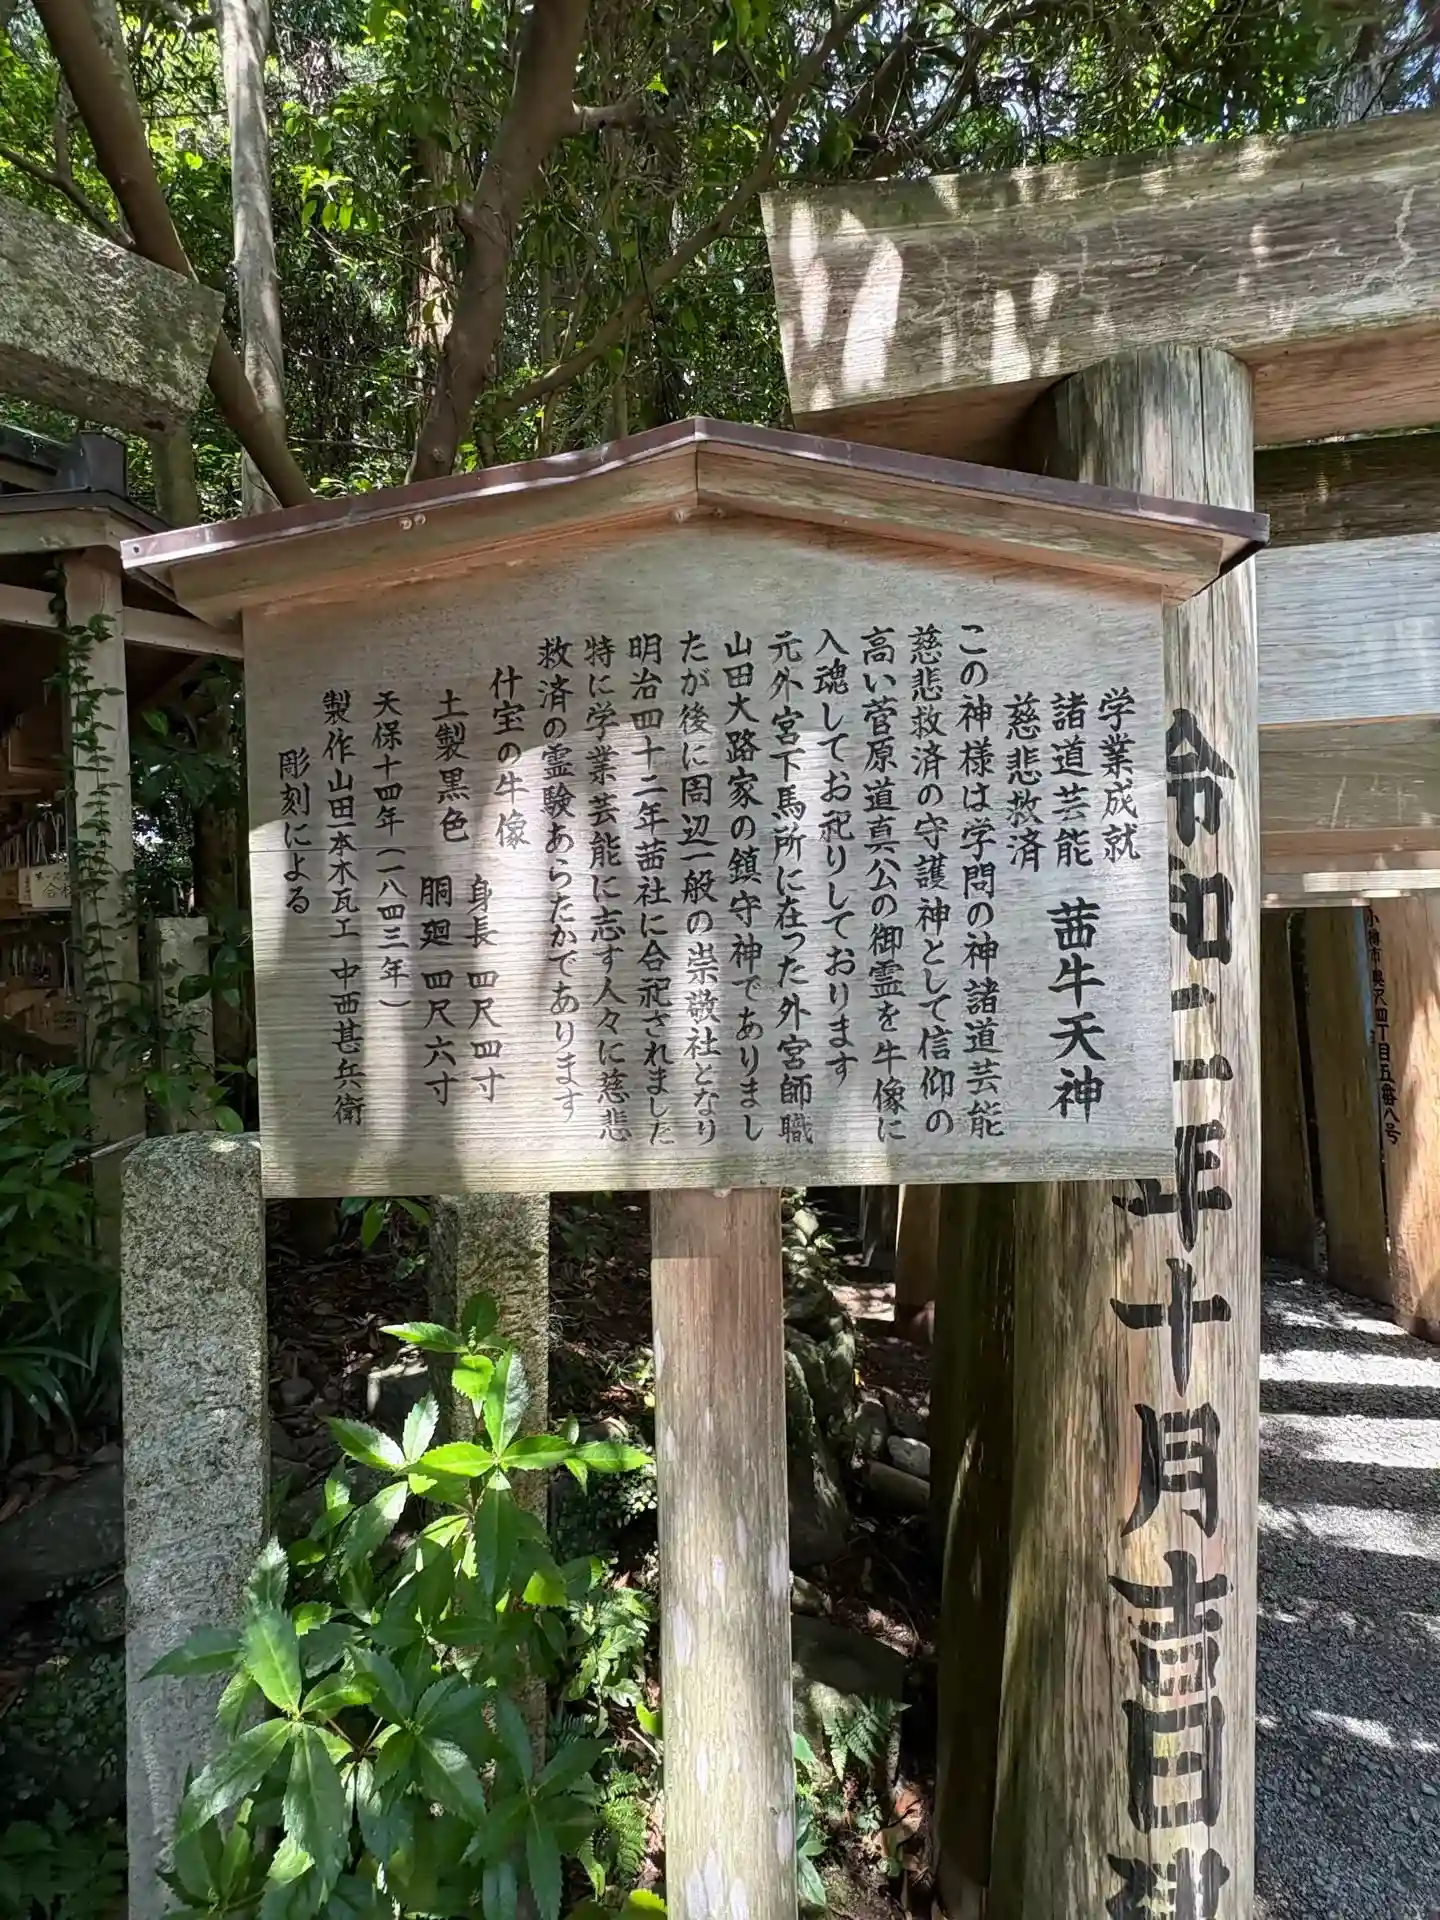 学業成就
諸道芸能
慈悲救済
茜牛天神
この神様は学問の神諸道芸能
慈悲救済の守護神として信仰の
高い菅原道真公の御霊を牛像に
入魂してお祀りしております
元外宮下馬所に在った外宮師職
山田大路家の鎮守神でありまし
たが後に周辺一般の崇敬社となり
明治四十二年茜社に合祀されました
特に学業芸能に志す人々に慈悲
救済の霊験あらたかであります
什宝の牛像
身長 四尺四寸
土製黒色
胴廻 四尺六寸
天保十四年（一八四三年）
製作山田一本木瓦工 中西甚兵衛
彫刻による
令和二年十月吉日建